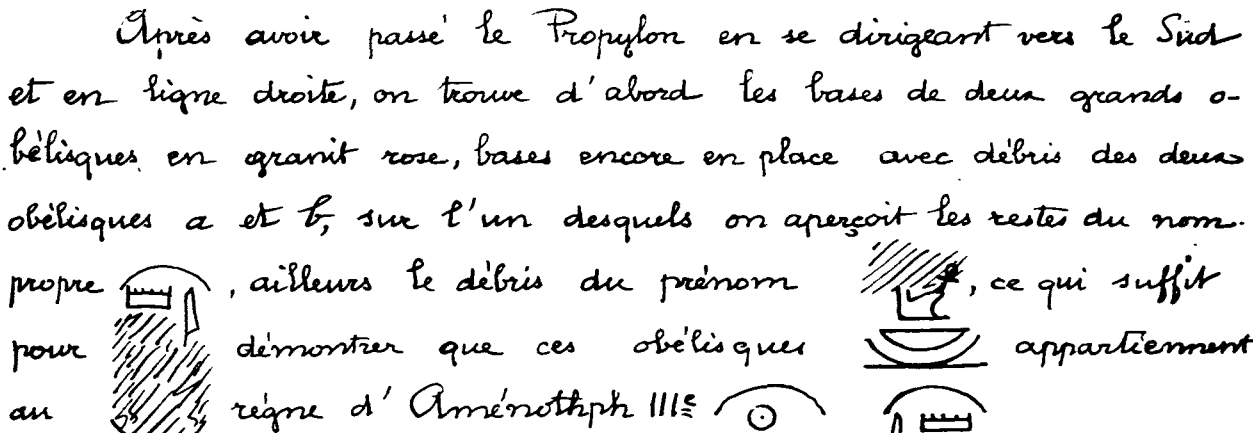 Après avoir passé le Propylon en se dirigeant vers le Sud
et en ligne droite, on trouve d'abord les bases de deux grands o-
bélisques en granit rose, bases encore en place avec débris des deux
obélisques a et b, sur l'un desquels on aperçoit les restes du nom
propre , ailleurs le débris du prénom , ce qui suffit
pour démontrer que ces obélisques appartiennent
au règne d'Aménothph IIIe